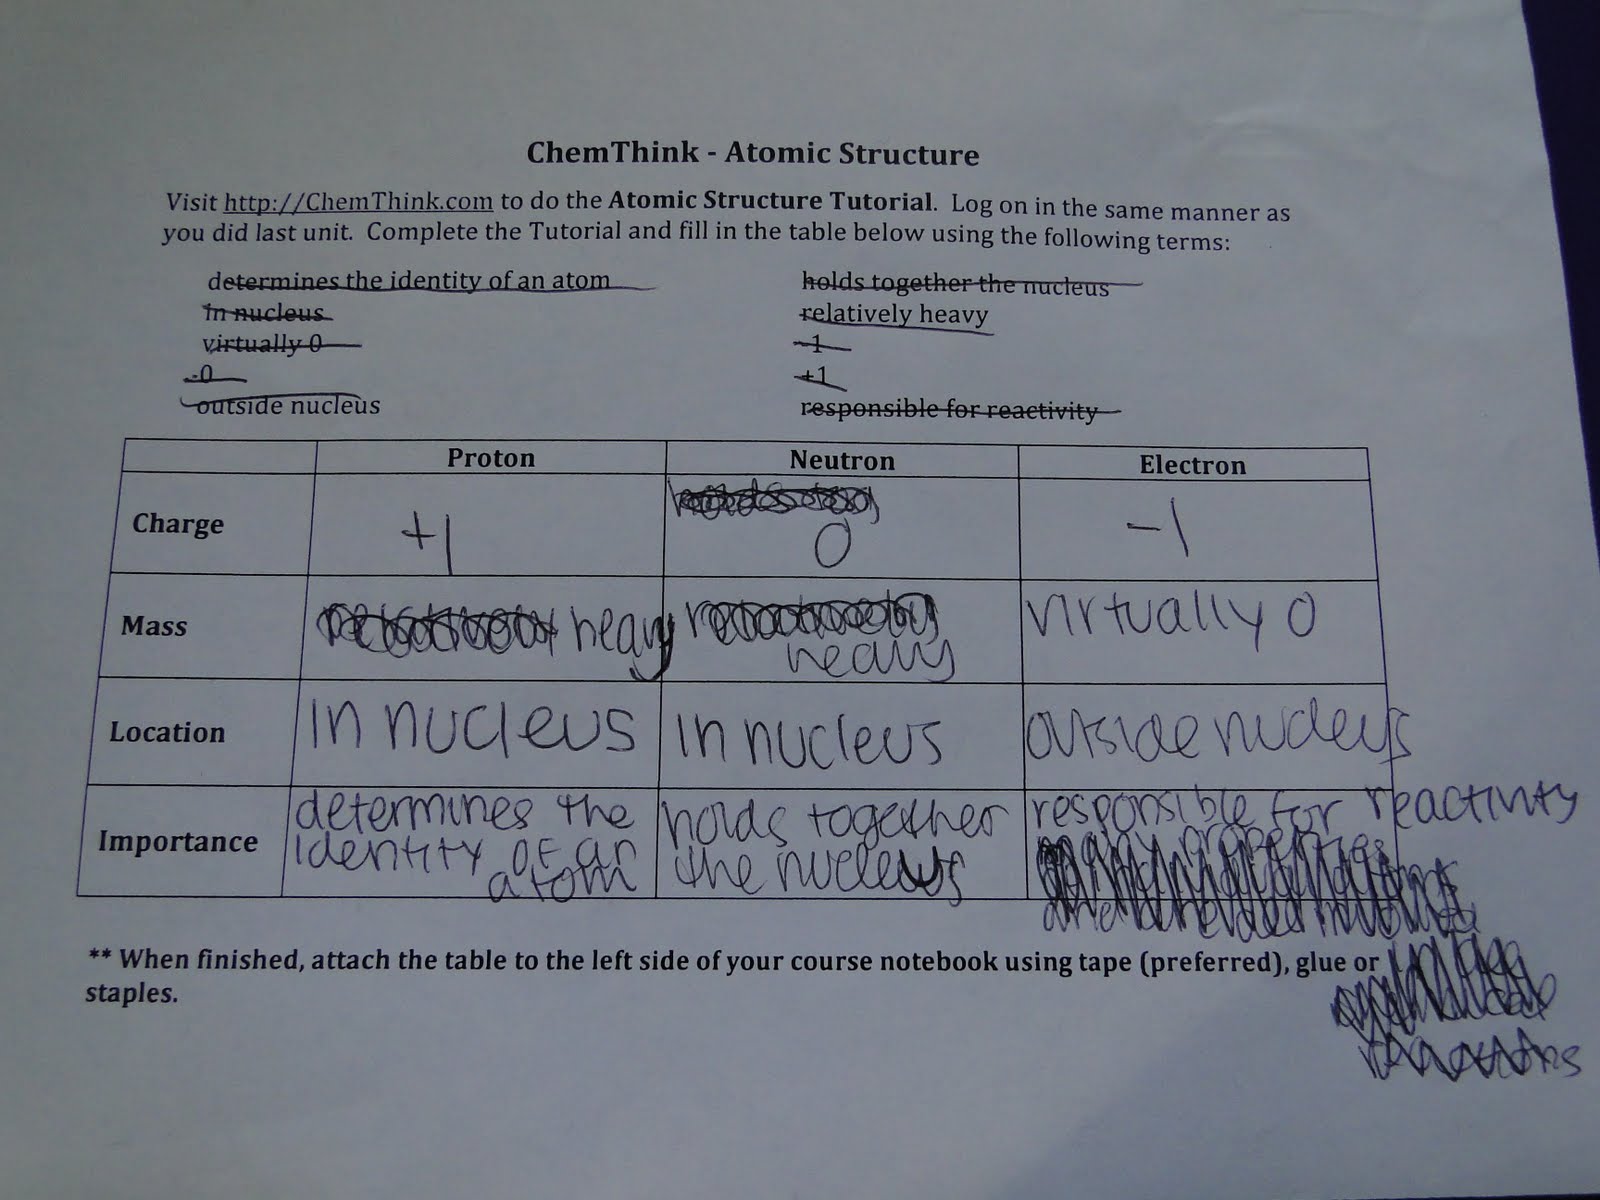 ChemThink - Atomic Structure
Visit http://ChemThink.com to do the Atomic Structure Tutorial. Log on in the same manner as
you did last unit. Complete the Tutorial and fill in the table below using the following terms:
determines the identity of an atom holds together the nucleus
in nucleus relatively heavy
virtually 0 -1
0 +1
outside nucleus responsible for reactivity
Proton Neutron Electron
Charge +1 0 -1
Mass heavy heavy virtually 0
Location in nucleus in nucleus outside nucleus
determines the holds together responsible for reactivity
Importance identity of an the nucleus
atom
** When finished, attach the table to the left side of your course notebook using tape (preferred), glue or
staples.